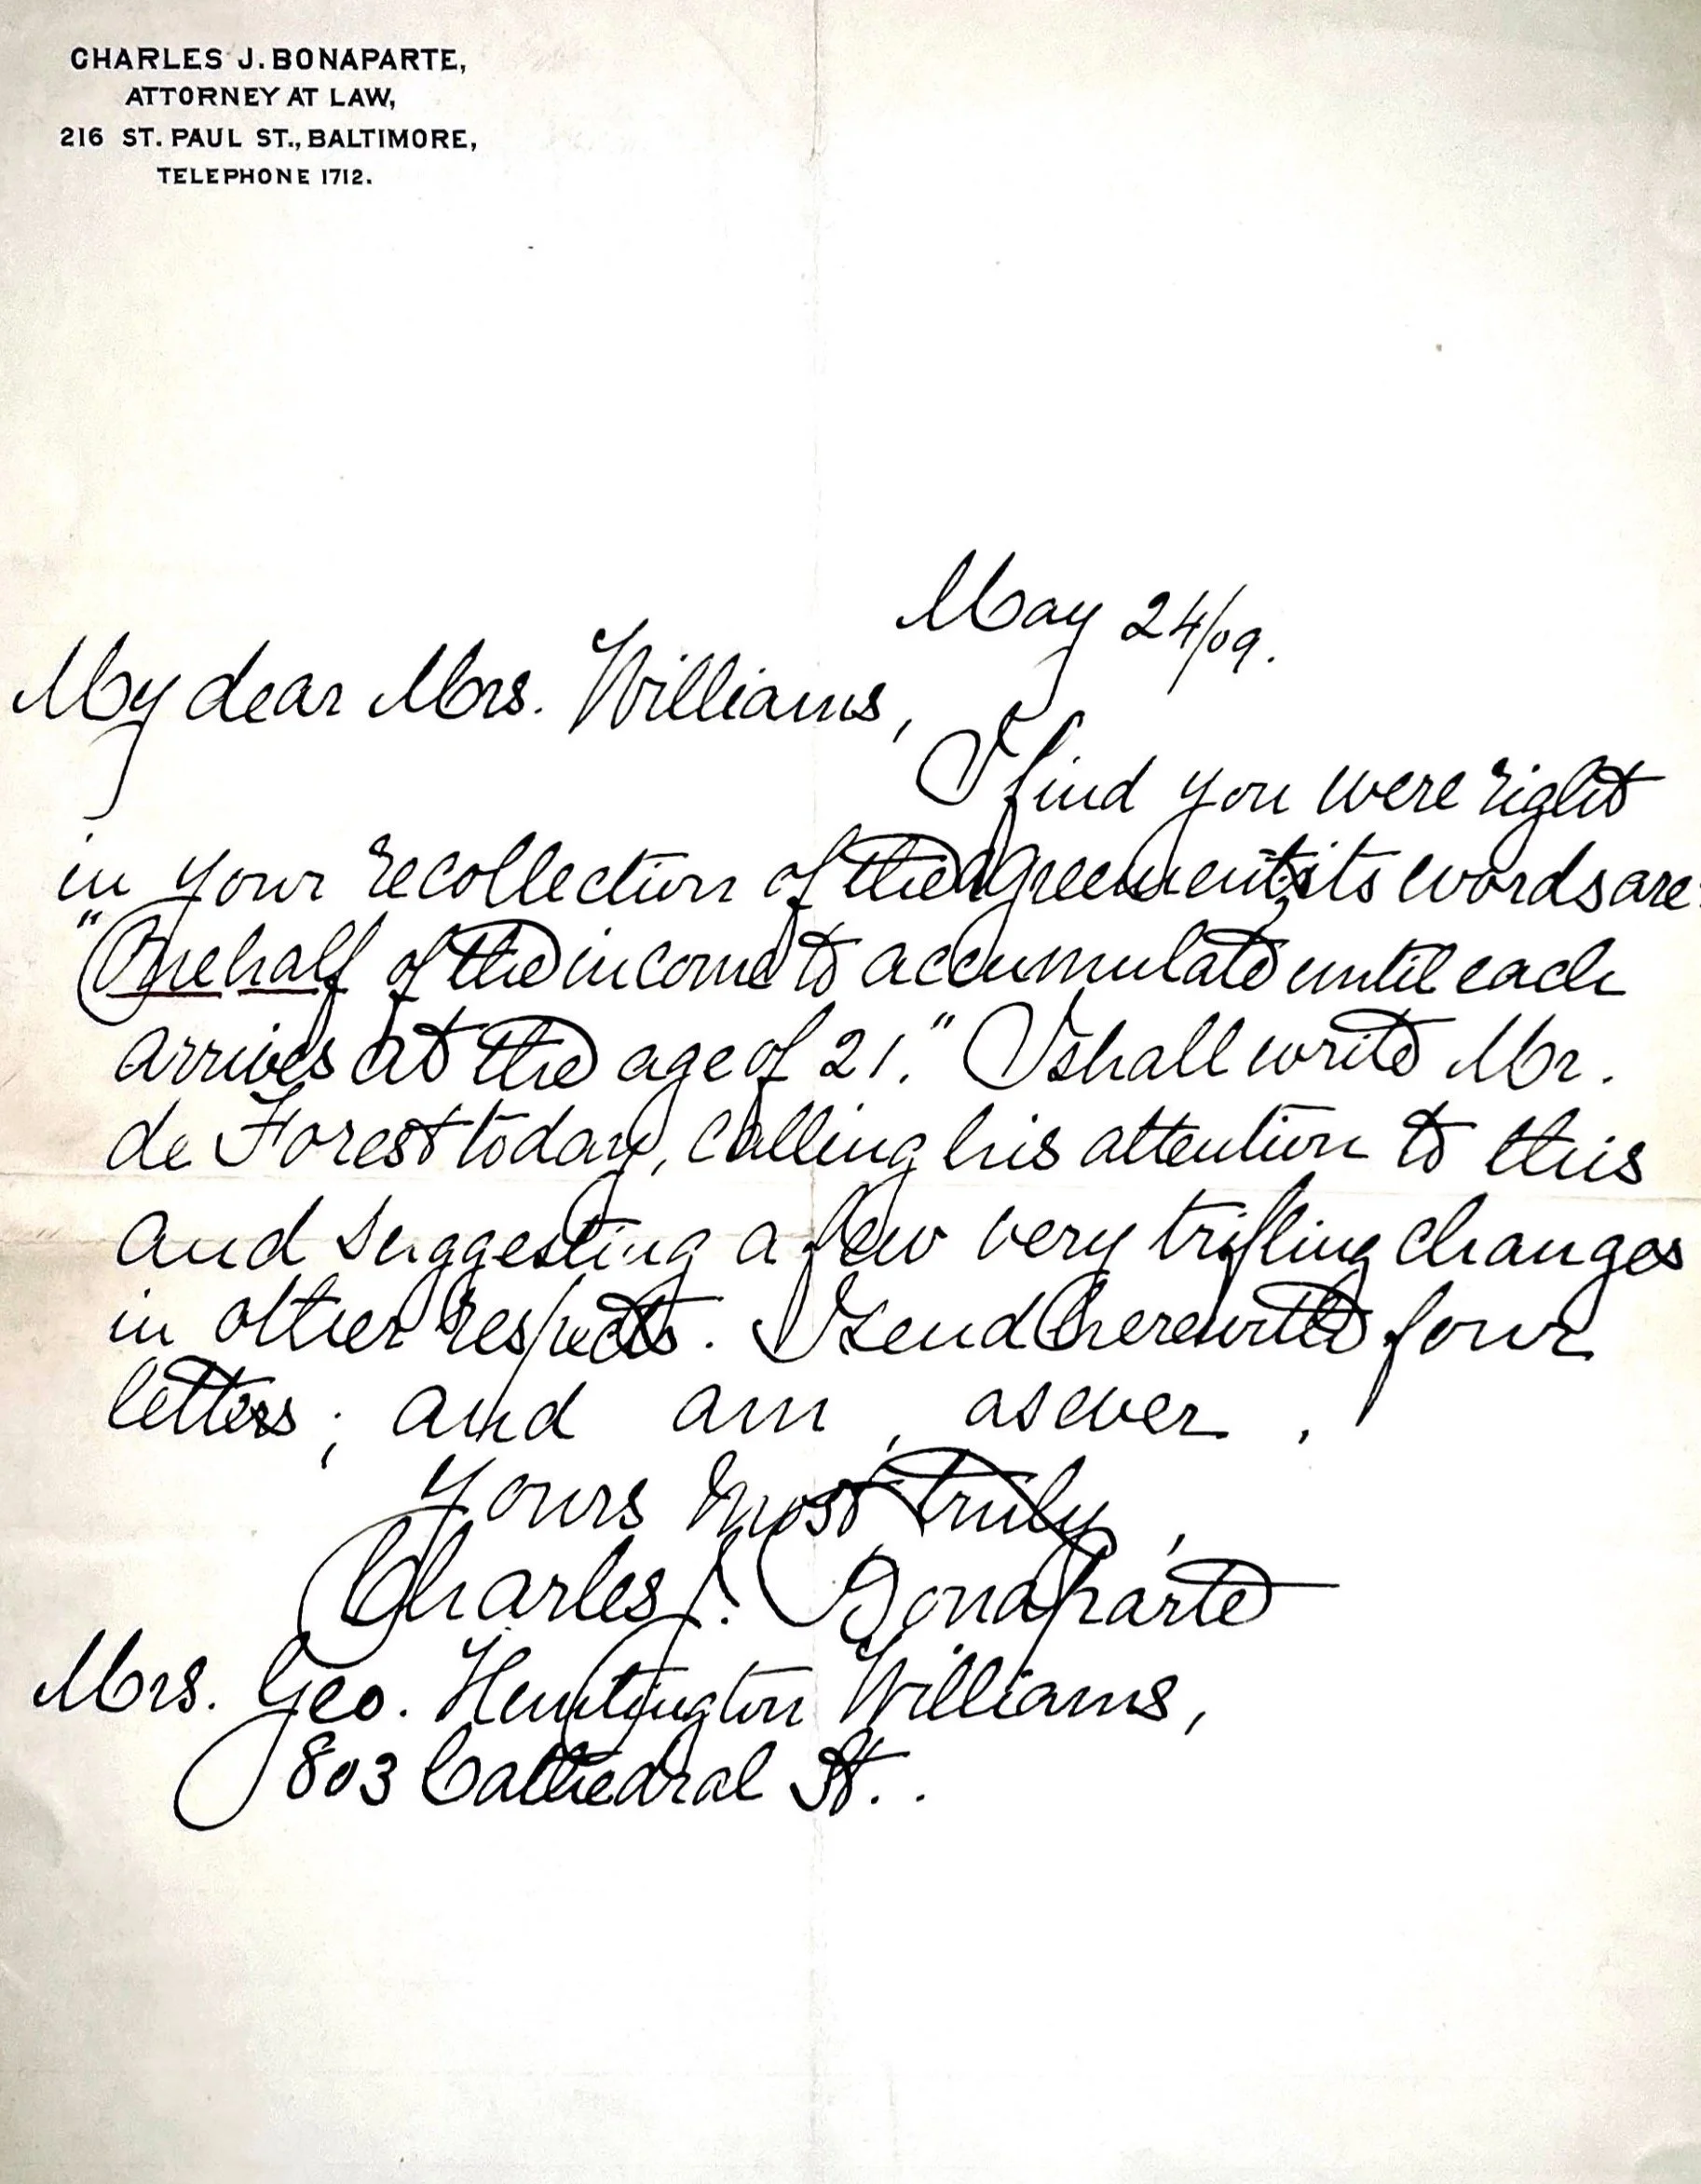 CHARLES J. BONAPARTE,
ATTORNEY AT LAW,
216 ST. PAUL ST., BALTIMORE,
TELEPHONE 1712.
May 24/09.
My dear Mrs. Williams,
I find you were right
in your recollection of the agreement; its words are:
"One half of the income to accumulate until each
arrives at the age of 21." I shall write Mr.
de Forest today, calling his attention to this
and suggesting a few very trifling changes
in other respects. I send herewith four
letters; and am, as ever,
Yours most truly,
Charles J. Bonaparte
Mrs. Geo. Huntington Williams,
803 Cathedral St..